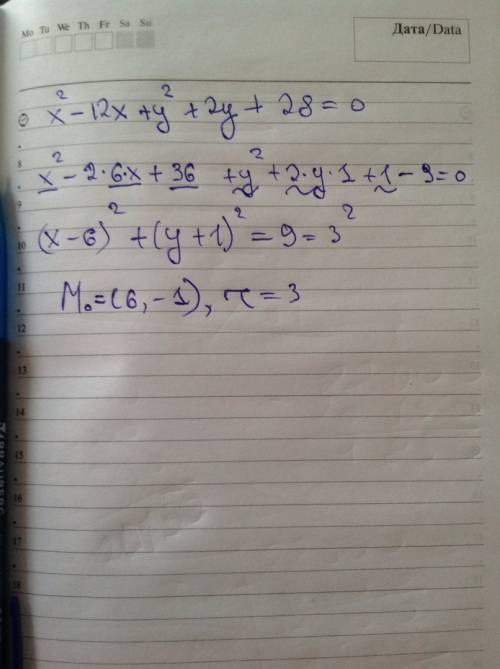 Mo Tu We Th Fr Sa Su
Дата/Data
x² - 12x + y² + 2y + 28 = 0
8
x² - 2·6·x + 36 + y² + 2·y·1 + 1 - 9 = 0
9
(x - 6)² + (y + 1)² = 9 = 3²
10
11
M₀ = (6, -1), r = 3
12
13
14
15
16
17
18